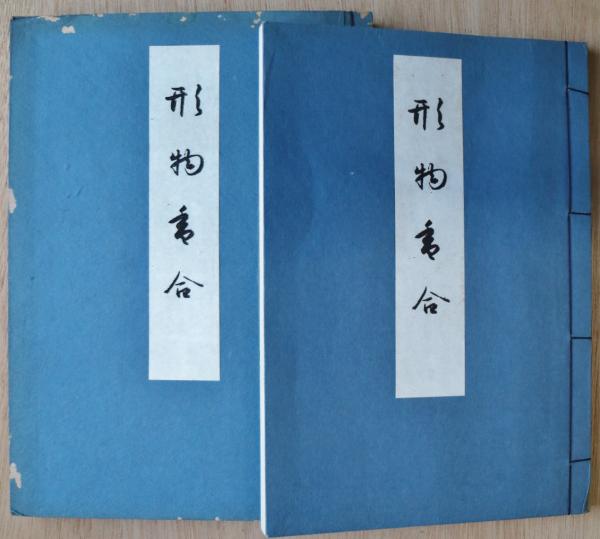 形物香合
形物香合